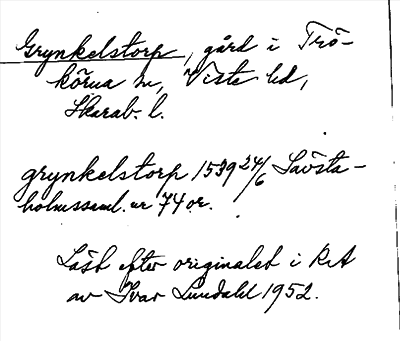 Grynkelstorp, gård i Trö-
körna sn, Viste hd,
Skarab. l.
grynkelstorp 1539 24/6 Sävsta-
holmssaml. nr 74 or.
Läst efter originalet i RA
av Ivar Lundahl 1952.